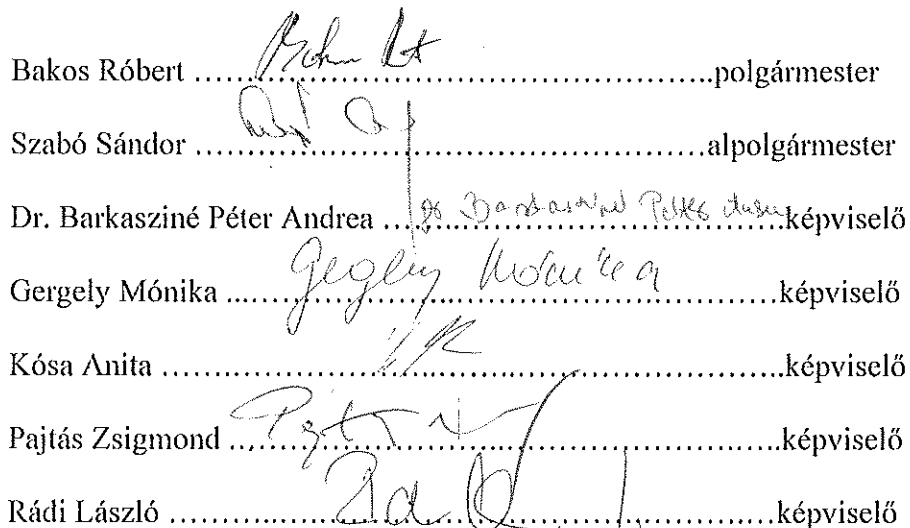 Bakos Róbert ……………………………………………polgármester
Szabó Sándor ……………………………………………alpolgármester
Dr. Barkasziné Péter Andrea ……………………………………képviselő
Gergely Mónika Gergely Mónika ……………………………………képviselő
Kósa Anita ……………………………………………képviselő
Pajtás Zsigmond ……………………………………………képviselő
Rádi László ……………………………………………képviselő